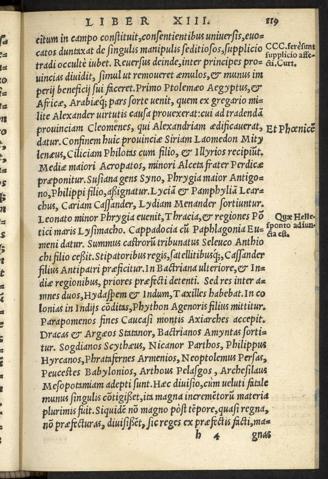 LIBER XIII. 119
citum in campo constituit, consentientibus universis, euo-
catos duntaxat de singulis manipulis seditiosos, supplicio
tradi occulte iubet. Reuersus deinde, inter principes pro-
uincias diuidit, simul ut remoueret æmulos, & munus im
perij beneficij sui faceret. Primo Ptolemæo Aegyptus, &
Africæ, Arabiæq; pars sorte uenit, quem ex gregario mi-
lite Alexander uirtutis causa prouexerat: cui ad tradendā
prouinciam Cleomenes, qui Alexandriam ædificauerat,
datur. Confinem huic prouinciæ Siriam Laomedon Mity
lenæus, Ciliciam Philotas cum filio, & Illyrios recipiūt.
Mediæ maiori Acropatos, minori Alcetæ frater Perdicæ
præponitur. Susiana gens Syno, Phrygia maior Antigo-
no, Philippi filio, assignatur. Lyciā & Pamphyliā Lear-
chus, Cariam Cassander, Lydiam Menander sortiuntur.
Leonato minor Phrygia euenit, Thracia, & regiones Pō
tici maris Lysimacho. Cappadocia cū Paphlagonia Eu-
meni datur. Summus castrorū tribunatus Seleuco Anthio
chi filio cessit. Stipatoribus regis, satellitibusq;, Cassander
filius Antipatri præficitur. In Bactriana ulteriore, & In-
diæ regionibus, priores præfecti detenti. Sed res inter a-
mnes duos, Hydaspem & Indum, Taxilles habebat. In co
lonias in Indijs cōditas, Phython Agenoris filius mittitur.
Parapomenos fines Caucasi montis Axiarches accepit.
Dracas & Argæos Statanor, Bactrianos Amyntas sorti-
tur. Sogdianos Scythæus, Nicanor Parthos, Philippus
Hyrcanos, Phratafernes Armenios, Neoptolemus Persas,
Peucestes Babylonios, Arthous Pelasgos, Archesilaus
Mesopotamiam adepti sunt. Hæc diuisio, cum ueluti fatale
munus singulis cōtigisset, ita magna incremētorū materia
plurimis fuit. Siquidē nō magno pòst tēpore, quasi regna,
nō præfecturas, diuisissēt, sic reges ex præfectis facti, ma-
h 4 gnas
CCC. ferè simt
supplicio affe-
cti, Curt.
Et Phœnicē
Quæ Helle-
sponto adiun-
cta est.